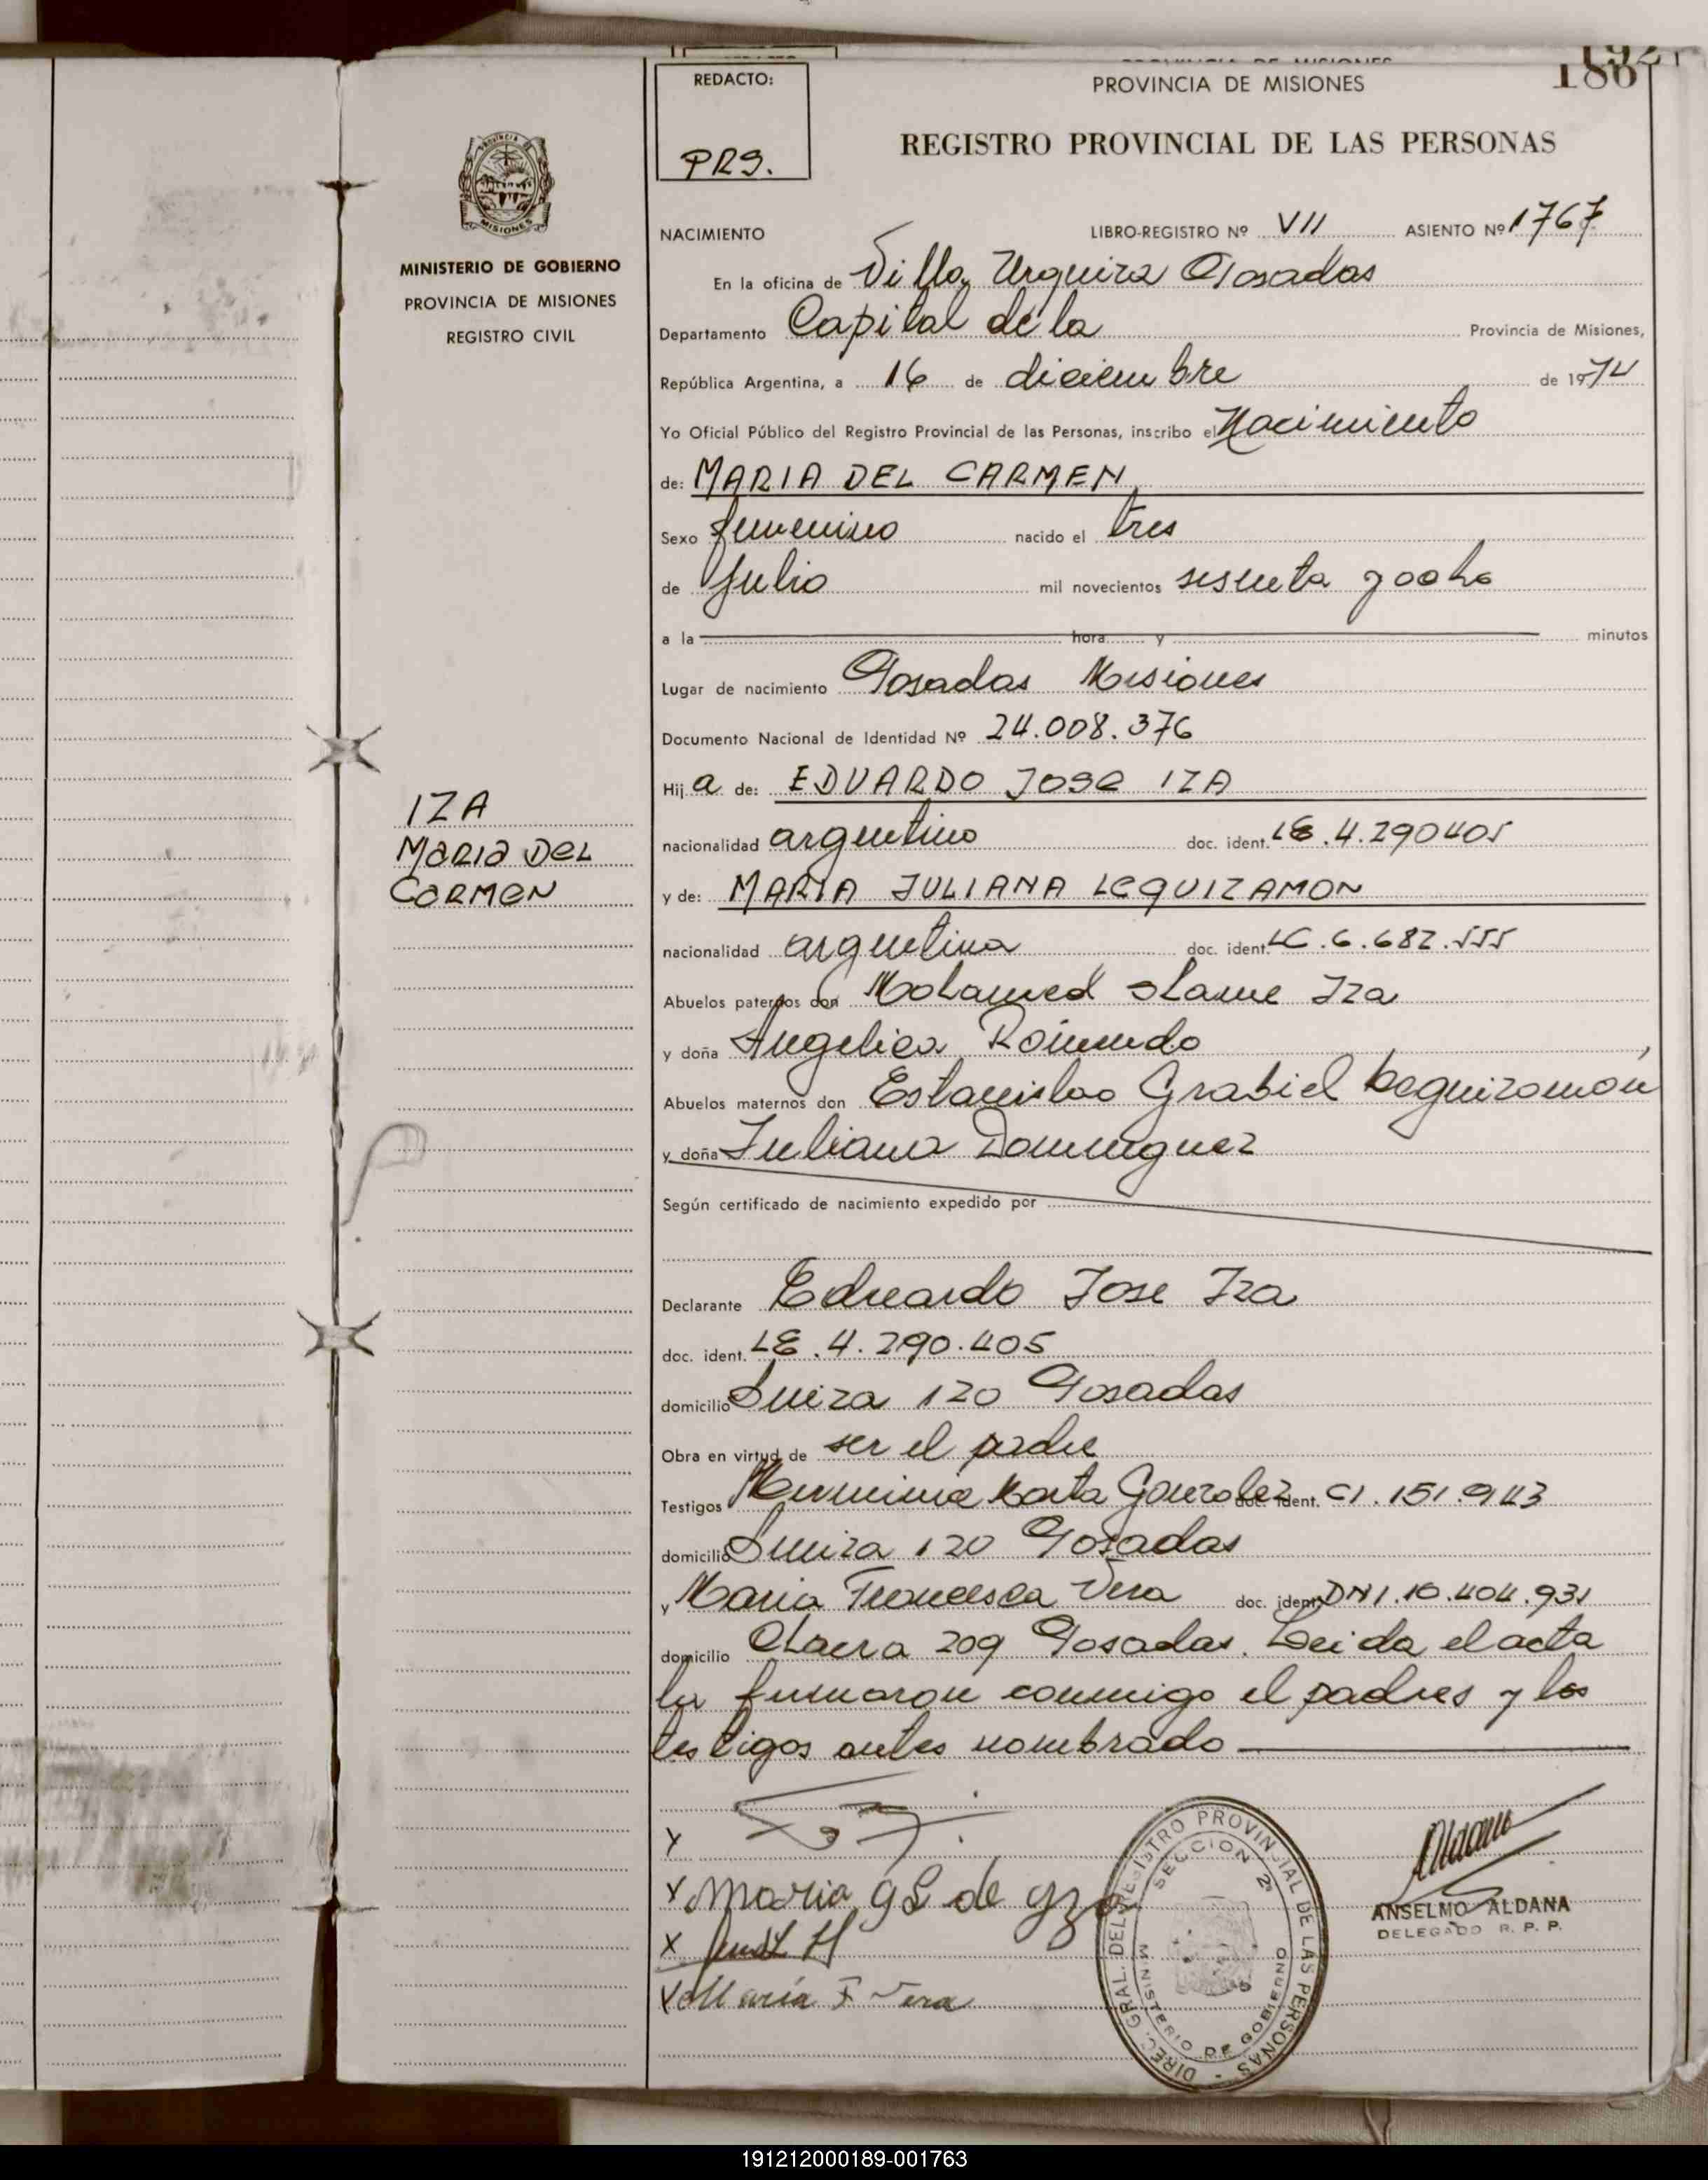 192
186
REDACTO:
PRG.
PROVINCIA DE MISIONES
REGISTRO PROVINCIAL DE LAS PERSONAS
PROVINCIA DE MISIONES
MINISTERIO DE GOBIERNO
PROVINCIA DE MISIONES
REGISTRO CIVIL
NACIMIENTO LIBRO-REGISTRO Nº VII ASIENTO Nº 1767
En la oficina de Villa Urquiza Posadas
Departamento Capital de la Provincia de Misiones,
República Argentina, a 16 de diciembre de 1974
Yo Oficial Público del Registro Provincial de las Personas, inscribo el Nacimiento
de: MARIA DEL CARMEN
Sexo femenino nacido el tres
de Julio mil novecientos sesenta y ocho
a la hora y minutos
Lugar de nacimiento Posadas Misiones
Documento Nacional de Identidad Nº 24.008.376
Hija de: EDUARDO JOSE IZA
IZA
MARIA DEL
CARMEN
nacionalidad argentino doc. ident. LE.4.290405
y de: MARIA JULIANA LEQUIZAMON
nacionalidad argentina doc. ident. LC.6.682.555
Abuelos paternos don Mohamed Iza
y doña Angelica Raimundo
Abuelos maternos don Estanislao Grabiel Leguizamon
y doña Juliana Dominguez
Según certificado de nacimiento expedido por
Declarante Eduardo Jose Iza
doc. ident. LE.4.290.405
domicilio Suiza 120 Posadas
Obra en virtud de ser el padre
Testigos Herminia Marta Gonzalez doc. ident. CI.151.943
domicilio Suiza 120 Posadas
y Maria Francisca Vera doc. ident. DNI.10.404.931
domicilio 209 Posadas. Leida el acta
la firmaron conmigo el padres y los
testigos antes nombrado
X
X Maria de Yza
X
X Maria F Vera
DIREC. GRAL. DEL REGISTRO PROVINCIAL DE LAS PERSONAS
SECCION 2ª
MINISTERIO DE GOBIERNO
Aldana
ANSELMO ALDANA
DELEGADO R. P. P.
191212000189-001763